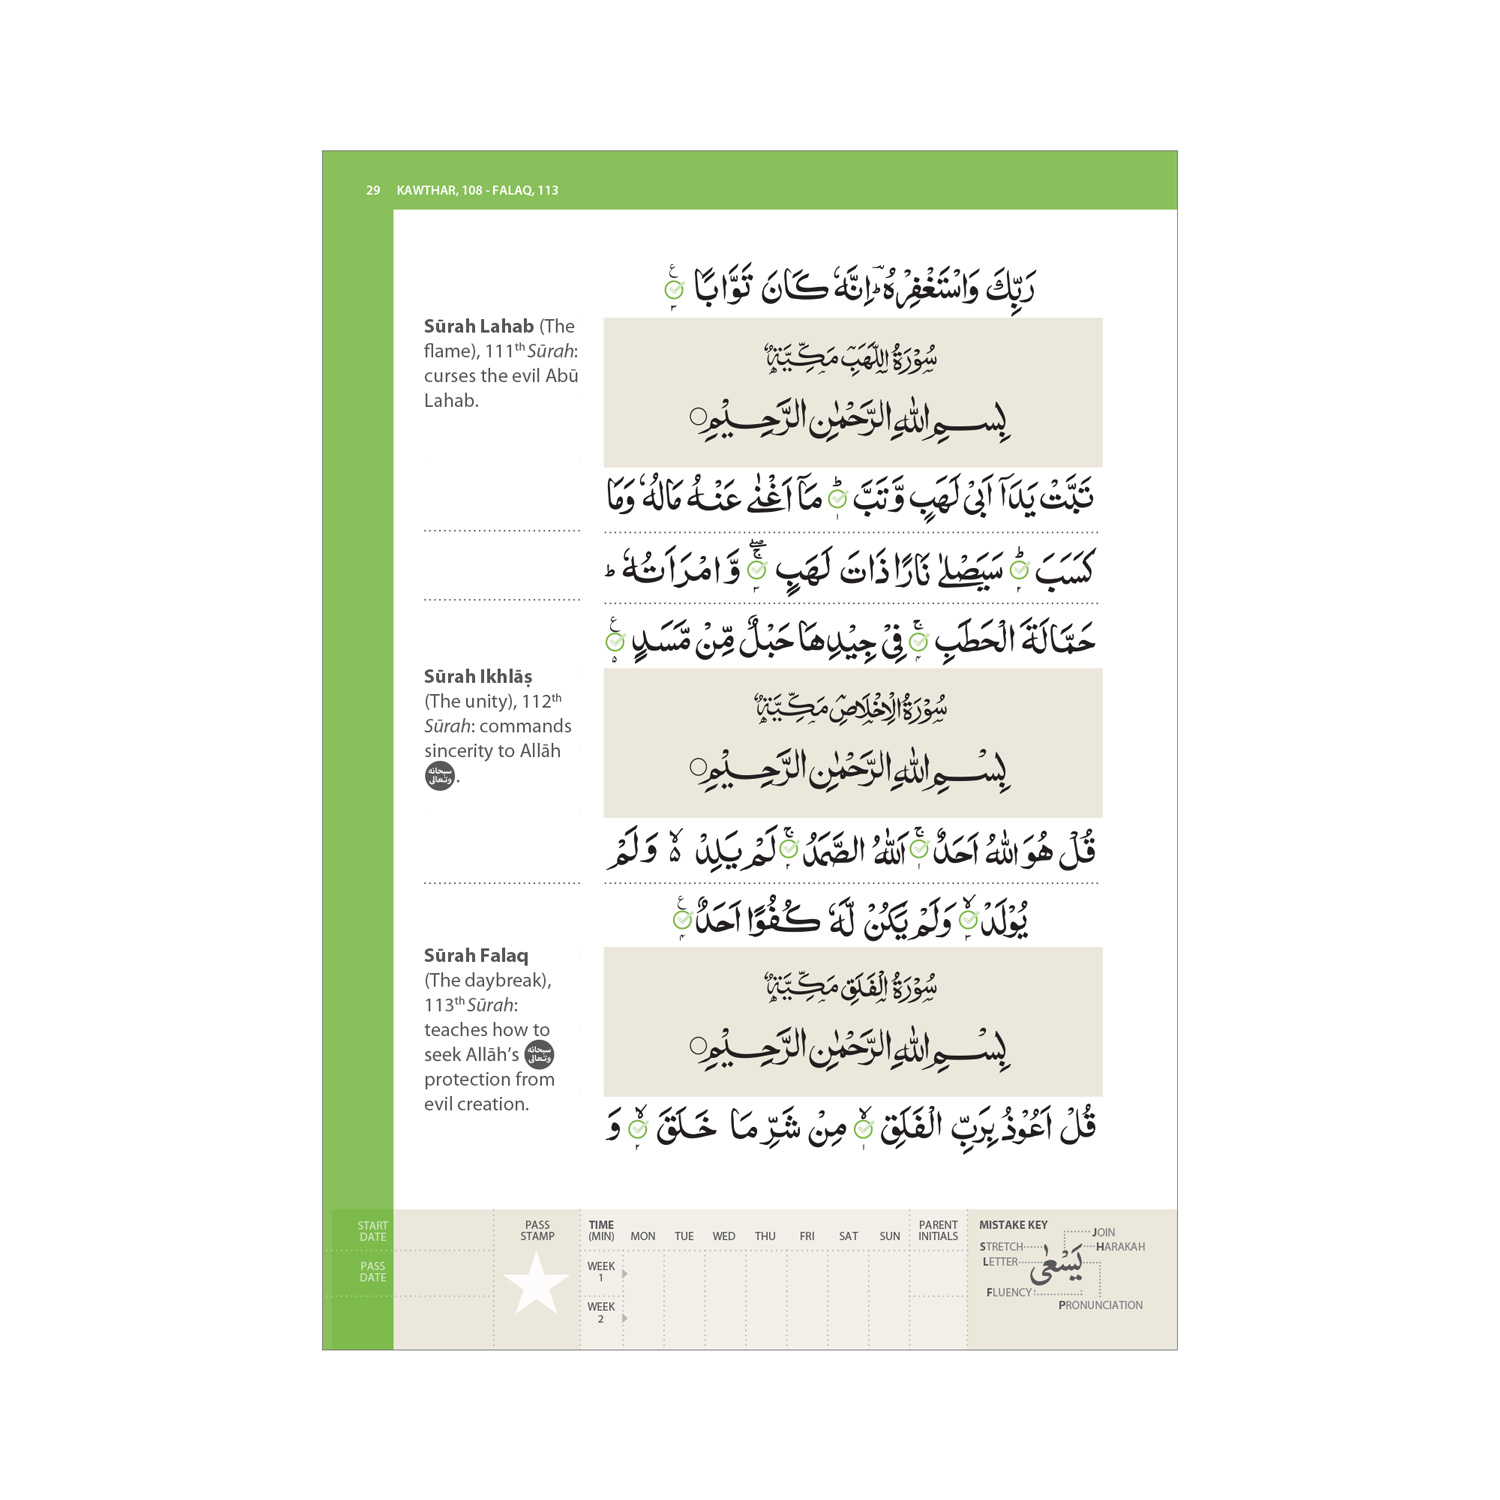 29 KAWTHAR, 108 - FALAQ, 113
رَبِّكَ وَاسْتَغْفِرْهُ ؕ اِنَّهٗ كَانَ تَوَّابًا ۳
Sūrah Lahab (The
flame), 111th Sūrah:
curses the evil Abū
Lahab.
سُوْرَةُ اللَّهَبِ مَكِّيَّةٌ
بِسْمِ اللّٰهِ الرَّحْمٰنِ الرَّحِيْمِ
تَبَّتْ يَدَآ اَبِىْ لَهَبٍ وَّتَبَّ ؕ ۱ مَاۤ اَغْنٰى عَنْهُ مَالُهٗ وَمَا
كَسَبَ ؕ ۲ سَيَصْلٰى نَارًا ذَاتَ لَهَبٍ ۚۖ ۳ وَّامْرَاَتُهٗ ؕ
حَمَّالَةَ الْحَطَبِ ۚ ۴ فِىْ جِيْدِهَا حَبْلٌ مِّنْ مَّسَدٍ ۵
Sūrah Ikhlāṣ
(The unity), 112th
Sūrah: commands
sincerity to Allāh
سبحانه وتعالى.
سُوْرَةُ الْاِخْلَاصِ مَكِّيَّةٌ
بِسْمِ اللّٰهِ الرَّحْمٰنِ الرَّحِيْمِ
قُلْ هُوَ اللّٰهُ اَحَدٌ ۚ ۱ اَللّٰهُ الصَّمَدُ ۚ ۲ لَمْ يَلِدْ ۙ وَلَمْ
يُوْلَدْ ۙ ۳ وَلَمْ يَكُنْ لَّهٗ كُفُوًا اَحَدٌ ۴
Sūrah Falaq
(The daybreak),
113th Sūrah:
teaches how to
seek Allāh's سبحانه وتعالى
protection from
evil creation.
سُوْرَةُ الْفَلَقِ مَكِّيَّةٌ
بِسْمِ اللّٰهِ الرَّحْمٰنِ الرَّحِيْمِ
قُلْ اَعُوْذُ بِرَبِّ الْفَلَقِ ۙ ۱ مِنْ شَرِّ مَا خَلَقَ ۙ ۲ وَ
START DATE
PASS DATE
PASS STAMP
TIME (MIN) MON TUE WED THU FRI SAT SUN PARENT INITIALS
WEEK 1
WEEK 2
MISTAKE KEY
JOIN
STRETCH HARAKAH
LETTER يَسْعٰى
FLUENCY
PRONUNCIATION